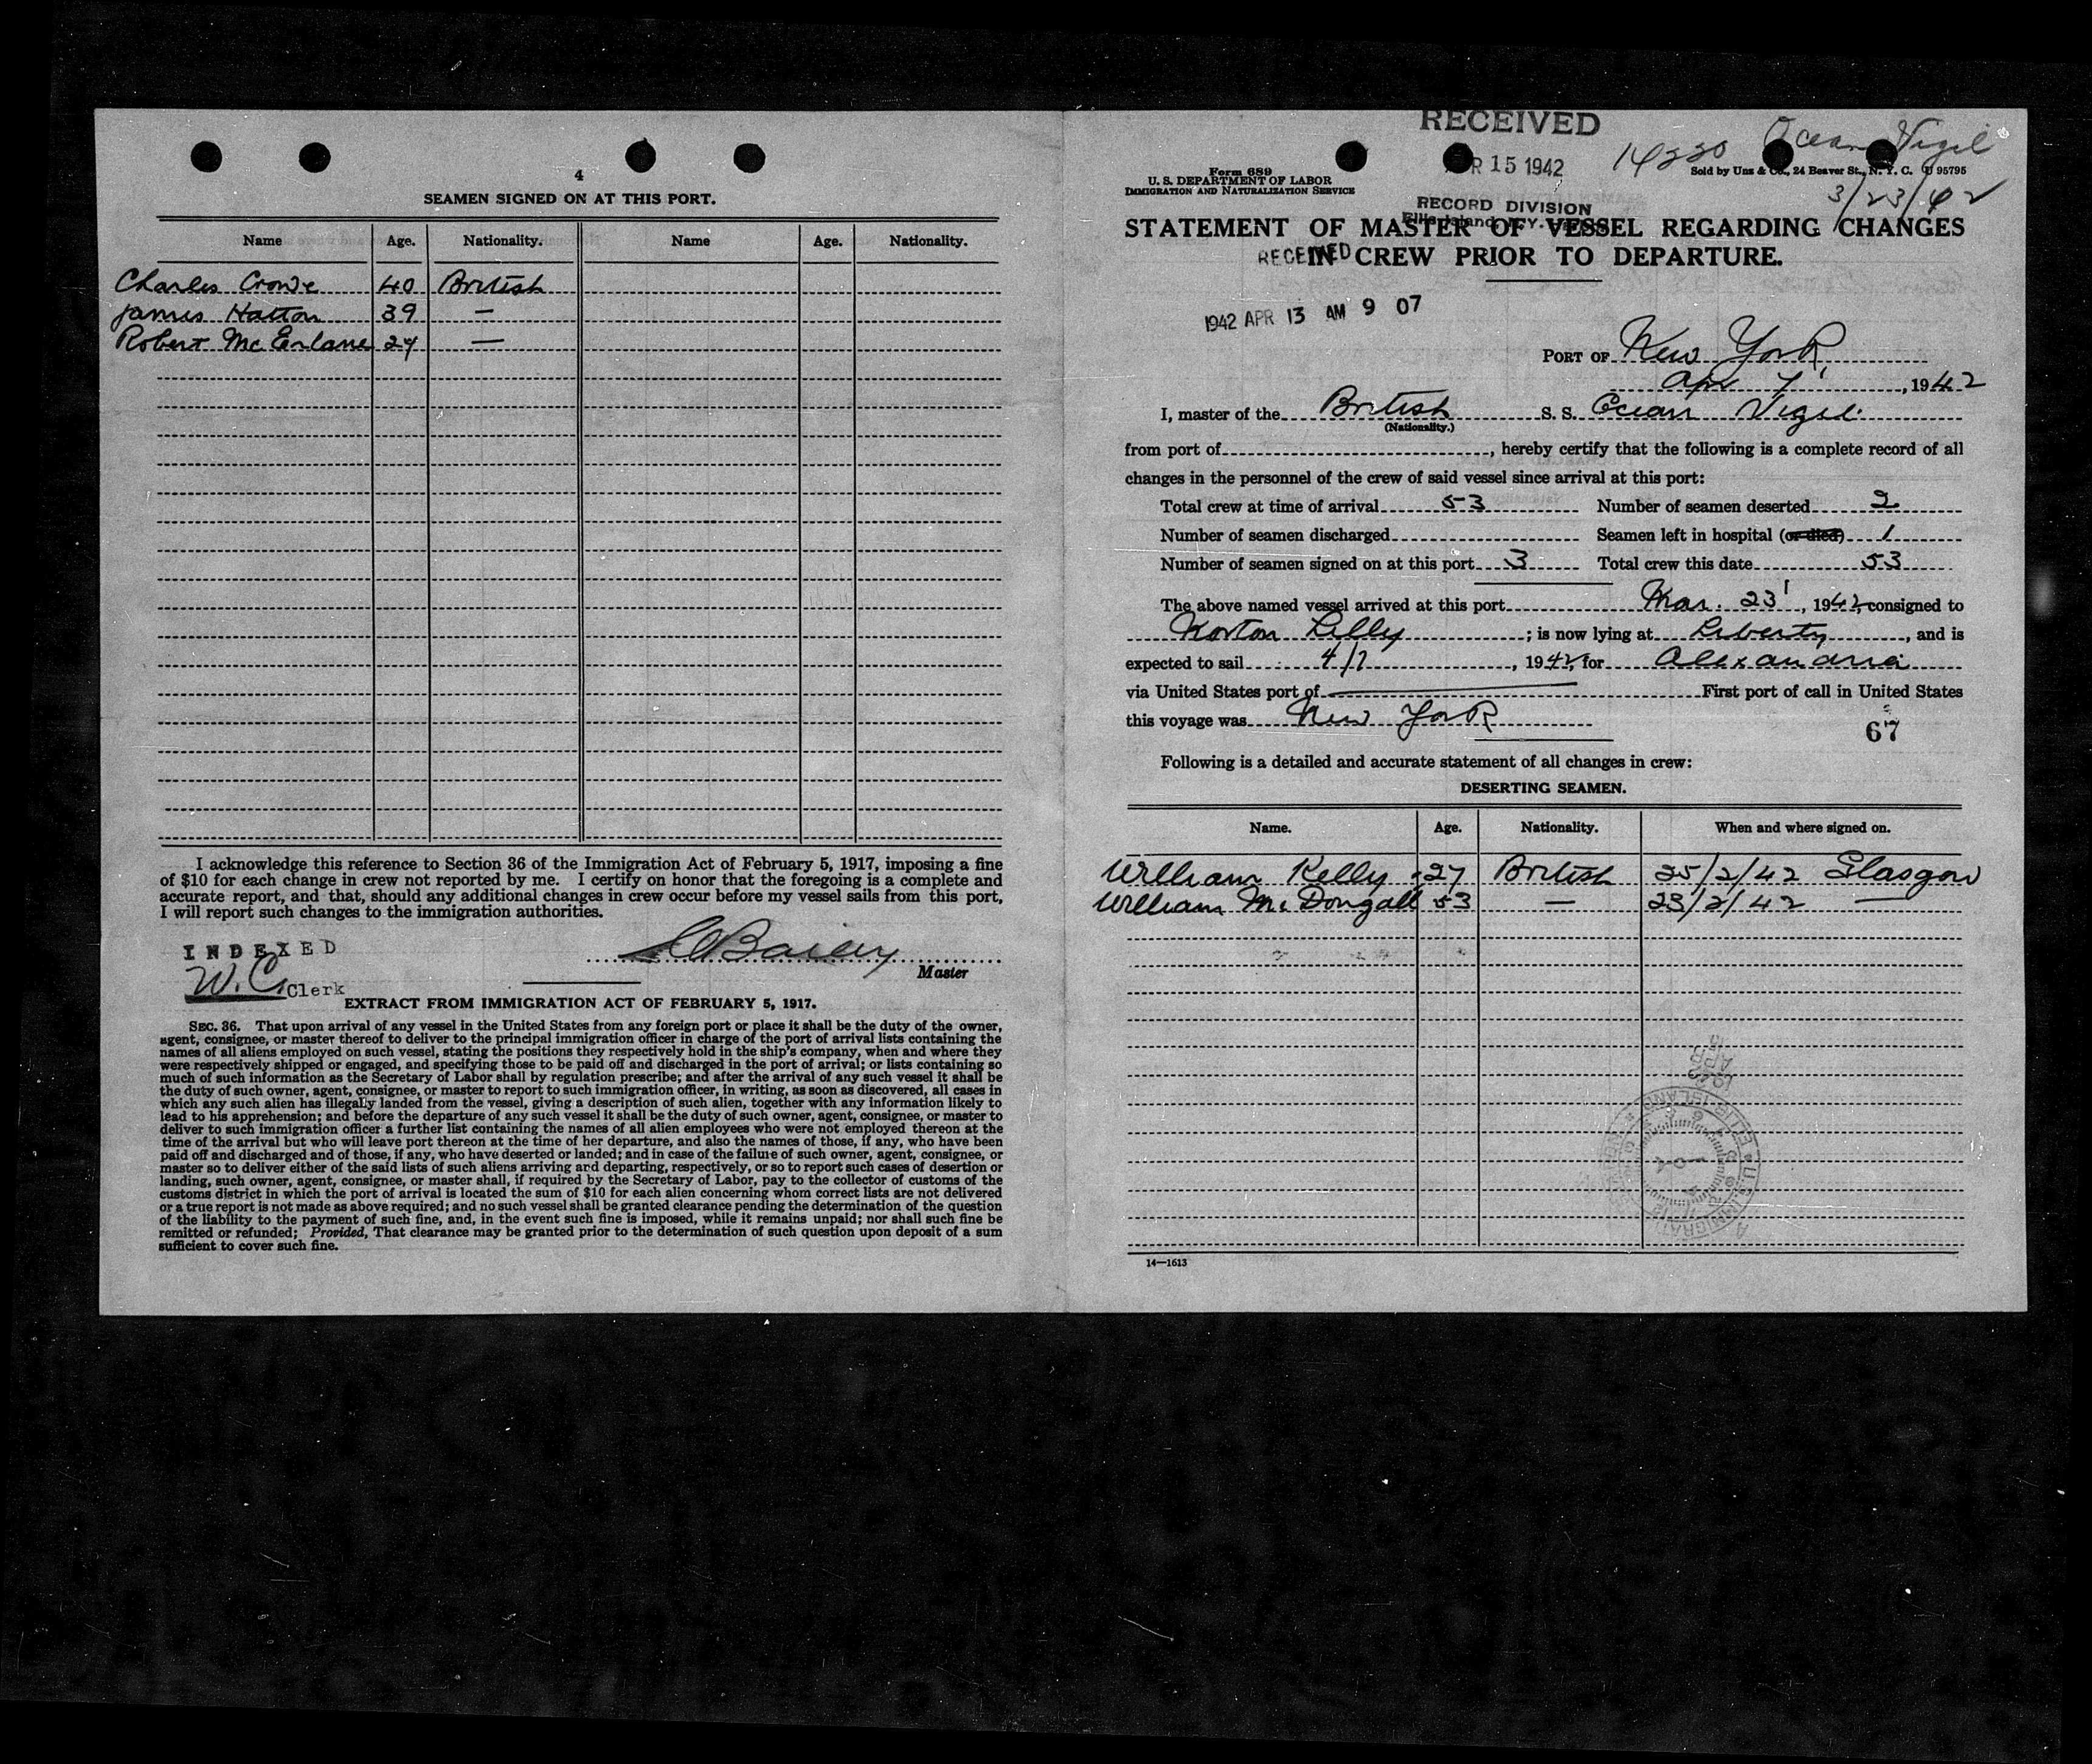 4
SEAMEN SIGNED ON AT THIS PORT.
Name Age. Nationality. Name Age. Nationality.
Charles Crowe 40 British
James Hatton 39 —
Robert McErlane 24 —
I acknowledge this reference to Section 36 of the Immigration Act of February 5, 1917, imposing a fine
of $10 for each change in crew not reported by me. I certify on honor that the foregoing is a complete and
accurate report, and that, should any additional changes in crew occur before my vessel sails from this port,
I will report such changes to the immigration authorities.
INDEXED
W.C. Clerk
Master
EXTRACT FROM IMMIGRATION ACT OF FEBRUARY 5, 1917.
SEC. 36. That upon arrival of any vessel in the United States from any foreign port or place it shall be the duty of the owner,
agent, consignee, or master thereof to deliver to the principal immigration officer in charge of the port of arrival lists containing the
names of all aliens employed on such vessel, stating the positions they respectively hold in the ship's company, when and where they
were respectively shipped or engaged, and specifying those to be paid off and discharged in the port of arrival; or lists containing so
much of such information as the Secretary of Labor shall by regulation prescribe; and after the arrival of any such vessel it shall be
the duty of such owner, agent, consignee, or master to report to such immigration officer, in writing, as soon as discovered, all cases in
which any such alien has illegally landed from the vessel, giving a description of such alien, together with any information likely to
lead to his apprehension; and before the departure of any such vessel it shall be the duty of such owner, agent, consignee, or master to
deliver to such immigration officer a further list containing the names of all alien employees who were not employed thereon at the
time of the arrival but who will leave port thereon at the time of her departure, and also the names of those, if any, who have been
paid off and discharged and of those, if any, who have deserted or landed; and in case of the failure of such owner, agent, consignee, or
master so to deliver either of the said lists of such aliens arriving and departing, respectively, or so to report such cases of desertion or
landing, such owner, agent, consignee, or master shall, if required by the Secretary of Labor, pay to the collector of customs of the
customs district in which the port of arrival is located the sum of $10 for each alien concerning whom correct lists are not delivered
or a true report is not made as above required; and no such vessel shall be granted clearance pending the determination of the question
of the liability to the payment of such fine, and, in the event such fine is imposed, while it remains unpaid; nor shall such fine be
remitted or refunded; Provided, That clearance may be granted prior to the determination of such question upon deposit of a sum
sufficient to cover such fine.
RECEIVED
R 15 1942
RECORD DIVISION
14220 Ocean Vigil
3/23/42
Form 689
U. S. DEPARTMENT OF LABOR
IMMIGRATION AND NATURALIZATION SERVICE
Sold by Unz & Co., 24 Beaver St., N. Y. C. 95795
STATEMENT OF MASTER OF VESSEL REGARDING CHANGES
IN CREW PRIOR TO DEPARTURE.
RECEIVED
1942 APR 13 AM 9 07
PORT OF New York
Apr 7, 1942
I, master of the British S. S. Ocean Vigil
(Nationality.)
from port of , hereby certify that the following is a complete record of all
changes in the personnel of the crew of said vessel since arrival at this port:
Total crew at time of arrival 53 Number of seamen deserted 2
Number of seamen discharged Seamen left in hospital (or died) 1
Number of seamen signed on at this port 3 Total crew this date 53
The above named vessel arrived at this port Mar. 23, 1942, consigned to
Norton Lilly ; is now lying at Liberty , and is
expected to sail 4/7 , 1942, for Alexandria
via United States port of — First port of call in United States
this voyage was New York
67
Following is a detailed and accurate statement of all changes in crew:
DESERTING SEAMEN.
Name. Age. Nationality. When and where signed on.
William Kelly 27 British 25/2/42 Glasgow
William McDongall 53 — 23/2/42 —
14—1613